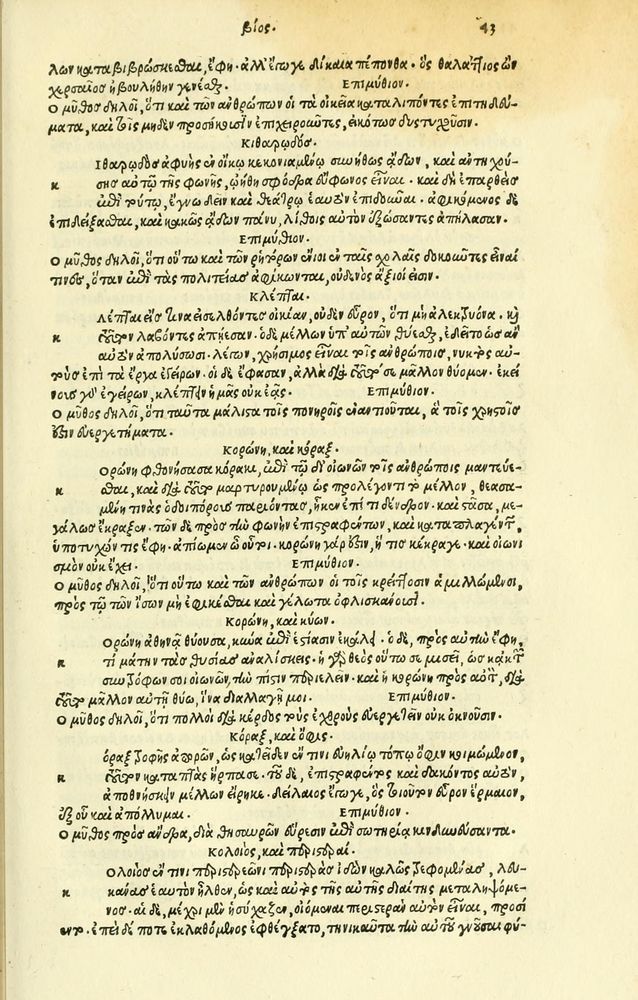 βίος. 43
λων καταβιβρώσκεσθαι, ἔφη. ἀλλ' ἔγωγε δίκαια πέπονθα. ὃς θαλάττιος ὢν
χερσαῖος ἠβουλήθην γενέσθαι. Ἐπιμύθιον.
Ὁ μῦθος δηλοῖ, ὅτι καὶ τῶν ἀνθρώπων οἱ τὰ οἰκεῖα καταλιπόντες ἐπιτηδεύ-
ματα, καὶ τοῖς μηδὲν προσήκουσιν ἐπιχειροῦντες, εἰκότως δυστυχοῦσιν.
Κιθαρῳδός.
Ιθαρῳδὸς ἀφυὴς ἐν οἴκῳ κεκονιαμένῳ συνήθως ᾄδων, καὶ ἀντηχού-
κ σης αὐτῷ τῆς φωνῆς, ᾠήθη σφόδρα εὔφωνος εἶναι. καὶ δὴ ἐπαρθεὶς
ἐπὶ τούτῳ, ἔγνω δεῖν καὶ θεάτρῳ ἑαυτὸν ἐπιδοῦναι. ἀφικόμενος δὲ
ἐπιδείξασθαι, καὶ κακῶς ᾄδων πάνυ, λίθοις αὐτὸν ἐξώσαντες ἀπήλασαν.
Ἐπιμύθιον.
Ὁ μῦθος δηλοῖ, ὅτι οὕτω καὶ τῶν ῥητόρων ἔνιοι ἐν ταῖς σχολαῖς δοκοῦντες εἶναί
τινες, ὅταν ἐπὶ τὰς πολιτείας ἀφίκωνται, οὐδενὸς ἄξιοί εἰσιν.
Κλέπται.
Λέπται εἴς τινα εἰσελθόντες οἰκίαν, οὐδὲν εὗρον, ὅτι μὴ ἀλεκτρυόνα. καὶ
κ τοῦτον λαβόντες ἀπῄεσαν. ὁ δὲ μέλλων ὑπ' αὐτῶν θύεσθαι, ἐδεῖτο ὡς ἂν
αὐτὸν ἀπολύσωσι. λέγων, χρήσιμος εἶναι τοῖς ἀνθρώποις, νυκτὸς αὐ-
τοὺς ἐπὶ τὰ ἔργα ἐγείρων. οἱ δὲ ἔφασαν, ἀλλὰ διὰ τοῦτό σε μᾶλλον θύομεν. ἐκεί
νους γὰρ ἐγείρων, κλέπτειν ἡμᾶς οὐκ ἐᾷς. Ἐπιμύθιον.
Ὁ μῦθος δηλοῖ, ὅτι ταῦτα μάλιστα τοῖς πονηροῖς ἐναντιοῦται, ἃ τοῖς χρηστοῖς
ἐστιν εὐεργετήματα.
Κορώνη, καὶ κόραξ.
Ορώνη φθονήσασα κόρακι, ἐπὶ τῷ δι' οἰωνῶν τοῖς ἀνθρώποις μαντεύε-
κ σθαι, καὶ διὰ τοῦτο μαρτυρουμένῳ ὡς προλέγοντι τὸ μέλλον, θεασα-
μένη τινὰς ὁδοιπόρους παριόντας, ἧκεν ἐπί τι δένδρον. καὶ στᾶσα, με-
γάλως ἔκραξεν. τῶν δὲ πρὸς τὴν φωνὴν ἐπιστραφέντων, καὶ καταπλαγέντων,
ὑποτυχών τις ἔφη. ἀπίωμεν ὦ οὗτοι. κορώνη γάρ ἐστιν, ἥτις κέκραγε. καὶ οἰωνι
σμὸν οὐκ ἔχει. Ἐπιμύθιον.
Ὁ μῦθος δηλοῖ, ὅτι οὕτω καὶ τῶν ἀνθρώπων οἱ τοῖς κρείττοσιν ἁμιλλώμενοι,
πρὸς τῷ τῶν ἴσων μὴ ἐφικέσθαι καὶ γέλωτα ὀφλισκάνουσι.
Κορώνη, καὶ κύων.
Ορώνη ἀθηνᾷ θύουσα, κύνα ἐπὶ ἑστίασιν ἐκάλει. ὁ δὲ, πρὸς αὐτὴν ἔφη,
κ τί μάτην τὰς θυσίας ἀναλίσκεις. ἡ γὰρ θεὸς οὕτω σε μισεῖ, ὡς κἀκ τῶν
συντρόφων σοι οἰωνῶν, τὴν πίστιν περιελεῖν. καὶ ἡ κορώνη πρὸς αὐτὸν, διὰ
τοῦτο μᾶλλον αὐτῇ θύω, ἵνα διαλλαγῇ μοι. Ἐπιμύθιον.
Ὁ μῦθος δηλοῖ, ὅτι πολλοὶ διὰ κέρδος τοὺς ἐχθροὺς εὐεργετεῖν οὐκ ὀκνοῦσιν.
Κόραξ, καὶ ὄφις.
Όραξ τροφῆς ἀπορῶν, ὡς κατεῖδεν ἔν τινι εὐηλίῳ τόπῳ ὄφιν κοιμώμενον,
κ τοῦτον καταπτὰς ἥρπασε. τοῦ δὲ, ἐπιστραφέντος καὶ δακόντος αὐτὸν,
ἀποθνήσκειν μέλλων εἴρηκε. δείλαιος ἔγωγε, ὃς τοιοῦτον εὗρον ἕρμαιον,
ἐξ οὗ καὶ ἀπόλλυμαι. Ἐπιμύθιον.
Ὁ μῦθος πρὸς ἄνδρα, διὰ θησαυρῶν εὕρεσιν ἐπὶ σωτηρίᾳ κινδυνεύσαντα.
Κολοιὸς, καὶ περιστεραί.
Ολοιὸς ἔν τινι περιστερεῶνι περιστερὰς ἰδὼν καλῶς τρεφομένας, λευ-
κ κάνας ἑαυτὸν ἦλθεν, ὡς καὶ αὐτὸς τῆς αὐτῆς διαίτης μεταληψόμε-
νος. αἱ δὲ, μέχρι μὲν ἡσύχαζεν, οἰόμεναι περιστερὰν αὐτὸν εἶναι, προσί
εντο. ἐπεὶ δέ ποτε ἐκλαθόμενος ἐφθέγξατο, τηνικαῦτα τὴν αὐτοῦ γνοῦσαι φύ-